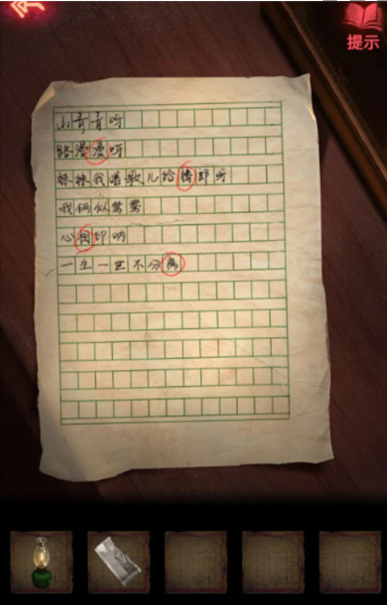 提示
小哥哥呀
路漫漫呀
妹妹我唱歌儿给情郎呀
我俩似鸳鸯
心相印呐
一生一世不分离